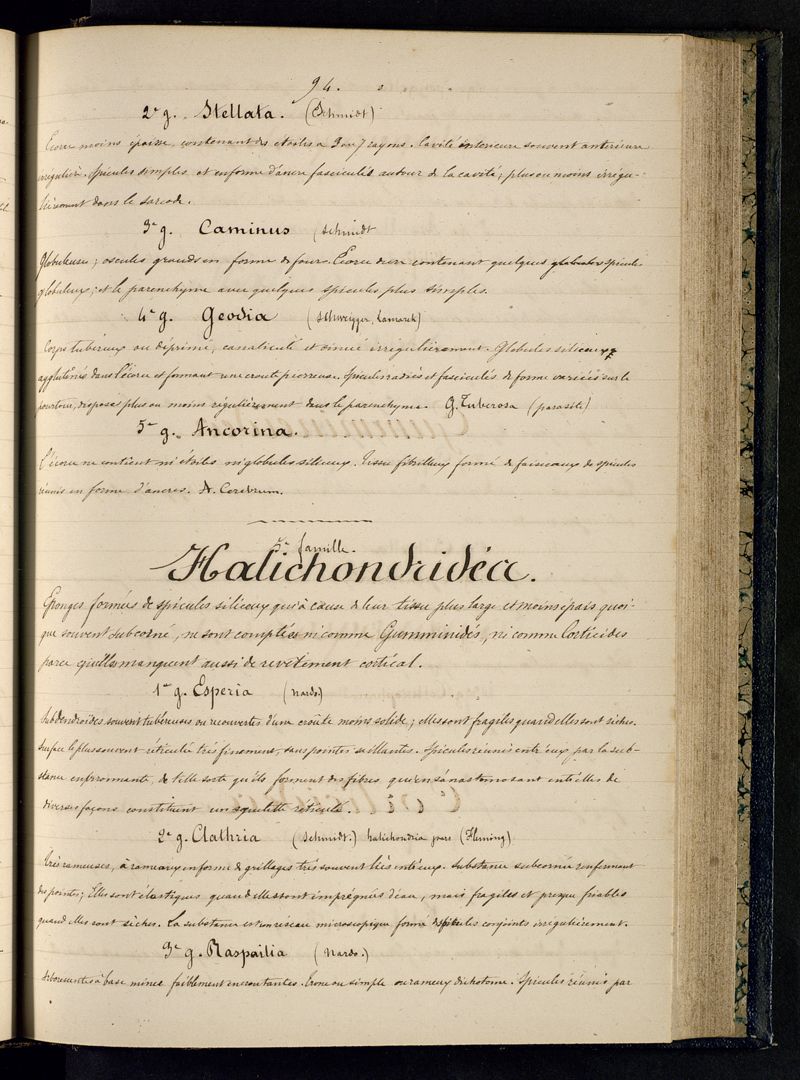 94.
2e g. Stellata. (Schmidt)
Ecorce moins épaisse, contenant des etoiles a 3 ou 7 rayons. Cavité intérieure souvent antérieure
irrégulière. Spicules simples et en forme d'ancre fasciculés autour de la cavité; plus ou moins irrégu-
lièrement dans le sarcode.
3e g. Caminus (Schmidt
Globuleuse; oscules grands en forme de four. Ecorce dure contenant quelques globules spicules
globuleux; et le parenchyme avec quelques spicules plus simples.
4e g. Geodia (Schweigger, Lamarck)
Corps tubéreux ou déprimé, canaliculé et sinué irrégulièrement. Globules siliceux
agglutinés dans l'écorce et formant une croute pierreuse. Spicules radiés et fasciculés de forme variées sur le
pourtour, disposé plus ou moins régulièrement dans le parenchyme. G. Tuberosa (parasite)
5e g. Ancorina.
L'écorce ne contient ni étoiles ni globules siliceux. Tissu fibrilleux formé de faisceaux de spicules
réunis en forme d'ancres. A. Cerebrum.
5e famille.
Halichondridéa.
Eponges formées de spicules siliceux qui à cause de leur tissu plus large et moins épais quoi-
que souvent subcorné, ne sont comptées ni comme Gumminidés, ni comme Corticides
parce qu'elles manquent aussi de revêtement cortical.
1er g. Esperia (Nardo)
Subdendroïdes, souvent tubéreuses ou recouvertes d'une croûte moins solide; elles sont fragiles quand elles sont sèches.
Surface le plus souvent réticulée très finement, sans pointes saillantes. Spicules réunis entr'eux par la sub-
stance environnante, de telle sorte qu'ils forment des fibres qui en s'anastomosant entre elles de
diverses façons constituent un squelette réticulé.
2e g. Clathria (Schmidt.) halichondria pars (Fleming)
Très rameuses, à rameaux en forme de grillages très souvent liés entr'eux. Substance subcornée renfermant
des pointes; Elles sont élastiques quand elles sont imprégnées d'eau, mais fragiles et presque friables
quand elles sont sèches. La substance est un réseau microscopique formé de spicules conjoints irrégulièrement.
3e g. Raspailia (Nardo.)
Arborescentes à base mince faiblement encroutantes. Tronc ou simple ou rameux dichotome. Spicules réunis par